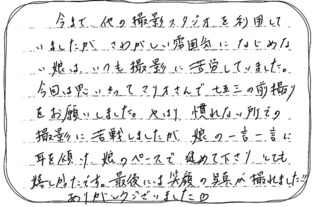 今まで、他の撮影スタジオを利用して
いましたが、さわがしい雰囲気になじめな
い娘は、いつも撮影に苦労していました。
今回は思いきってマリオさんで七五三の前撮り
をお願いしました。やはり慣れない所での
撮影に苦戦しましたが、娘の一言一言に
耳を傾け、娘のペースで進めて下さり、とても
嬉しかったです。最後には笑顔の写真が撮れました!!
ありがとうございました♡